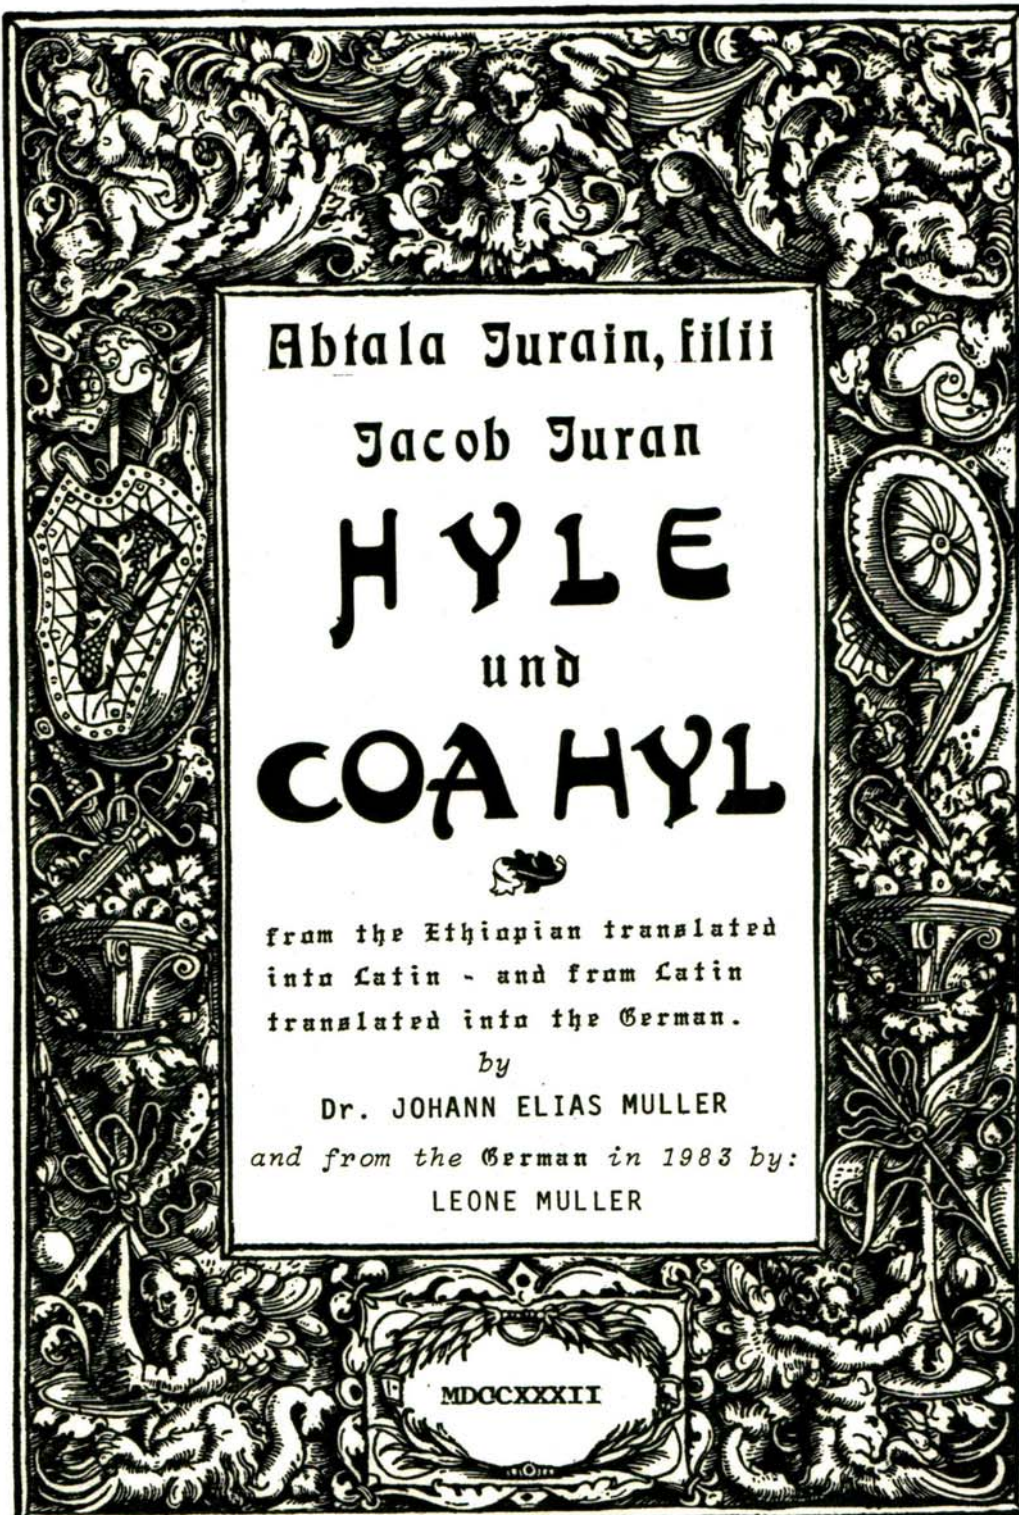 Abtala Jurain, filii
Jacob Juran
HYLE
und
COAHYL
from the Ethiopian translated
into Latin - and from Latin
translated into the German.
by
Dr. JOHANN ELIAS MULLER
and from the German in 1983 by:
LEONE MULLER
MDCCXXXII